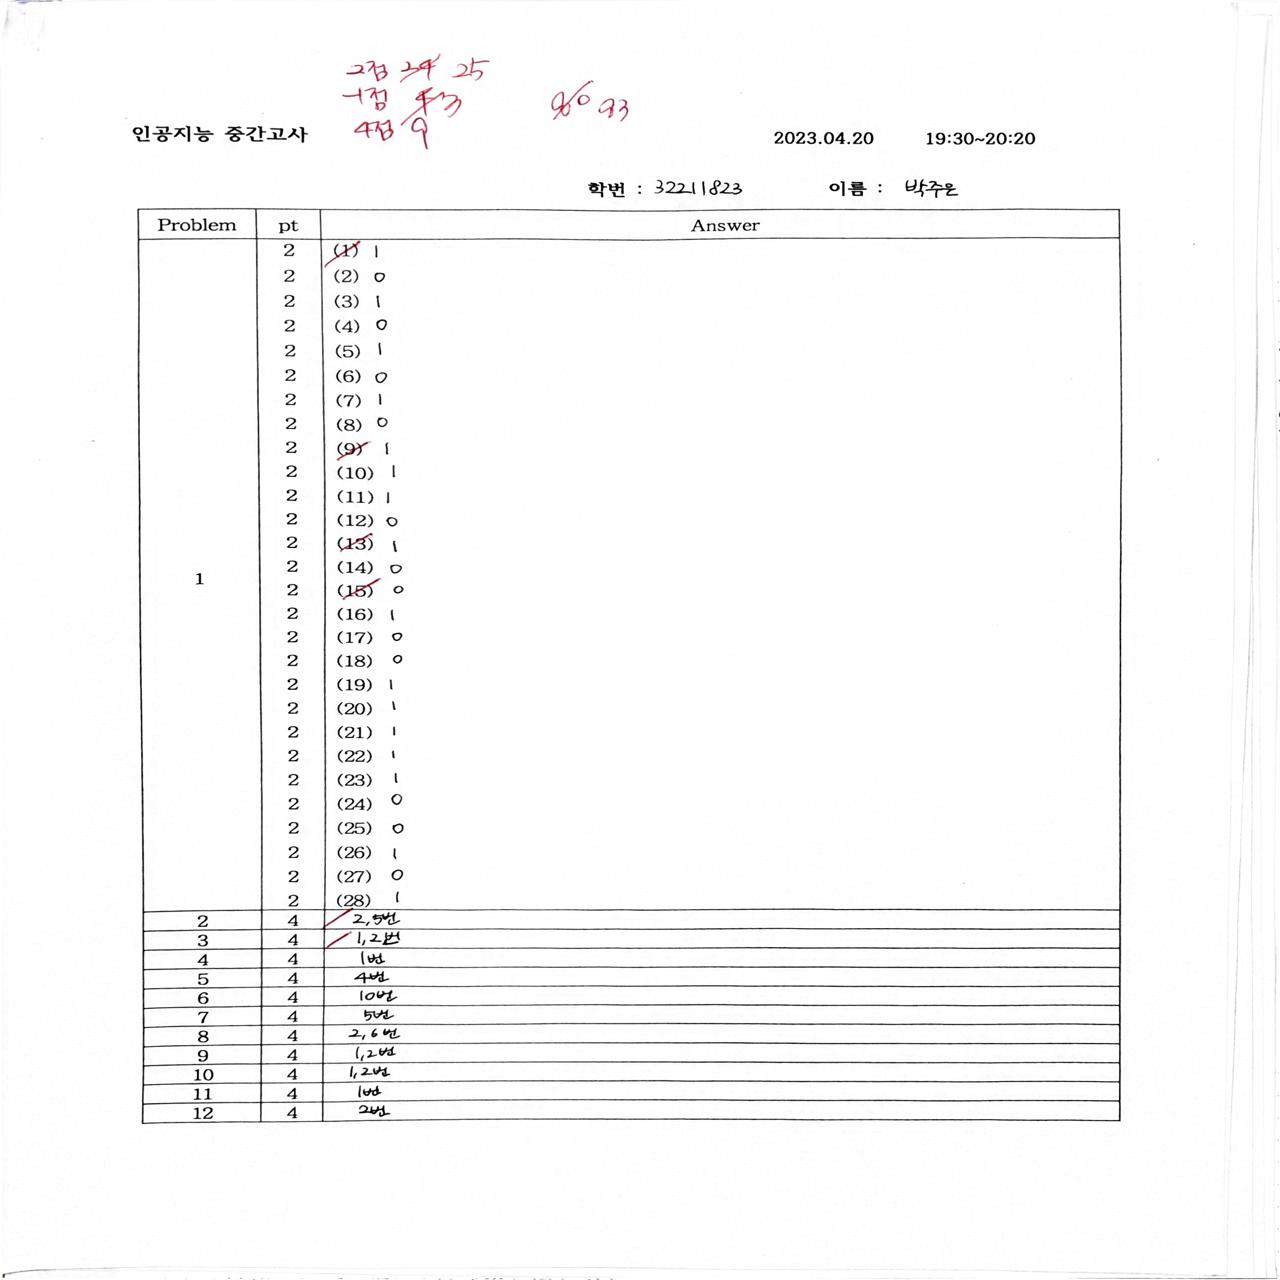 2점 24 25
-1점 4 3
90 93
4점 9
인공지능 중간고사
2023.04.20 19:30~20:20
학번 : 32211823 이름 : 박주은
Problem pt Answer
2 (1) 1
2 (2) 0
2 (3) 1
2 (4) 0
2 (5) 1
2 (6) 0
2 (7) 1
2 (8) 0
2 (9) 1
2 (10) 1
2 (11) 1
2 (12) 0
2 (13) 1
2 (14) 0
1
2 (15) 0
2 (16) 1
2 (17) 0
2 (18) 0
2 (19) 1
2 (20) 1
2 (21) 1
2 (22) 1
2 (23) 1
2 (24) 0
2 (25) 0
2 (26) 1
2 (27) 0
2 (28) 1
2 4 2,5번
3 4 1,2번
4 4 1번
5 4 4번
6 4 10번
7 4 5번
8 4 2,6번
9 4 1,2번
10 4 1,2번
11 4 1번
12 4 2번